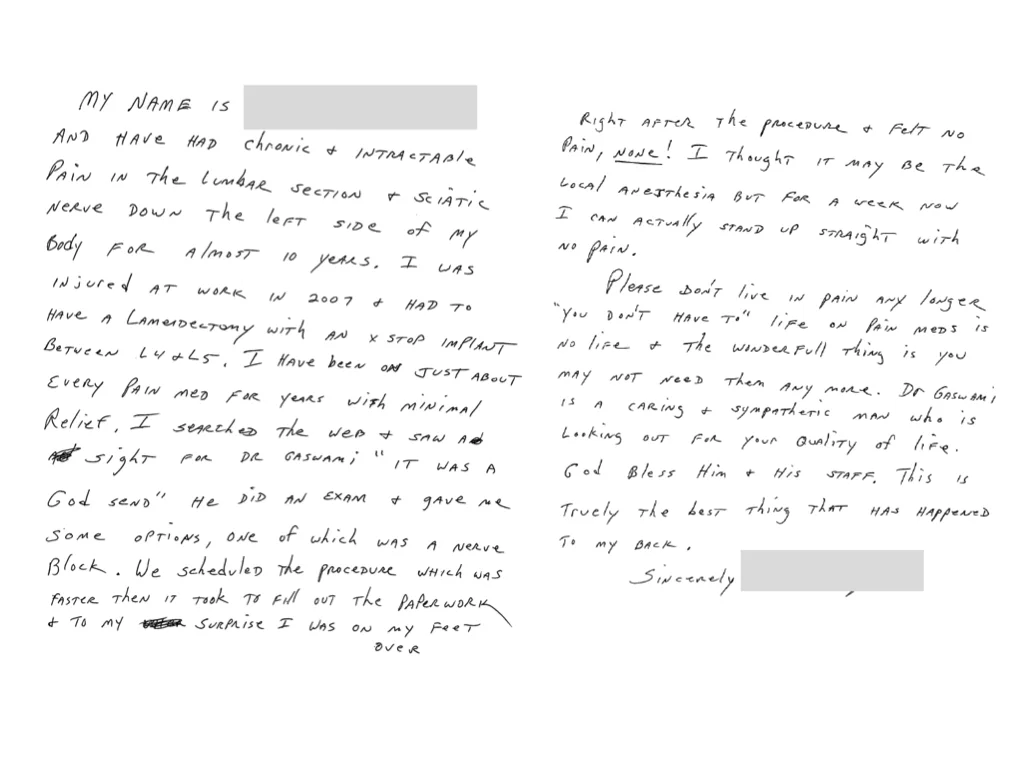 MY NAME IS
AND HAVE HAD chronic & INTRACTABle
PAIN IN The lumbar section & SciATic
Nerve DOWN The left side of my
Body FOR Almost 10 years. I WAS
INjured AT WORK IN 2007 & HAD TO
HAVE A LAMeNDectomy with AN X STOP IMPlANT
BeTween L4 & L5. I HAVE been ON JUST ABOUT
Every PAIN MED FOR years with minimal
Relief. I searched The web & SAW A
sight FOR DR GASWAMI "IT WAS A
God send" He DID AN EXAM & gave me
Some OPTIONS, ONE of which was A Nerve
Block. We scheduled The procedure which was
FASTER Then IT TOOK TO Fill OUT The PAPERWORK
& TO MY SURPRISE I WAS ON MY FEET
OVER
Right AFTER The procedure & Felt NO
PAIN, NONE! I Thought IT MAY Be The
local Anesthesia BUT FOR A week NOW
I CAN ACTUALLY STAND UP STRAIGHT with
NO PAIN.
Please DON'T live IN PAIN ANY longer
"YOU DON'T HAVE TO" life ON PAIN MEDS is
NO life & The WONDERFull Thing is you
MAY NOT NEED Them ANY more. DR GASWAMI
IS A CARING & SYMPATHETIC MAN who is
Looking OUT FOR YOUR QUALITY of life.
God Bless Him & His STAFF. This is
Truely The best Thing THAT HAS HAPPENED
TO MY BACK.
Sincerely